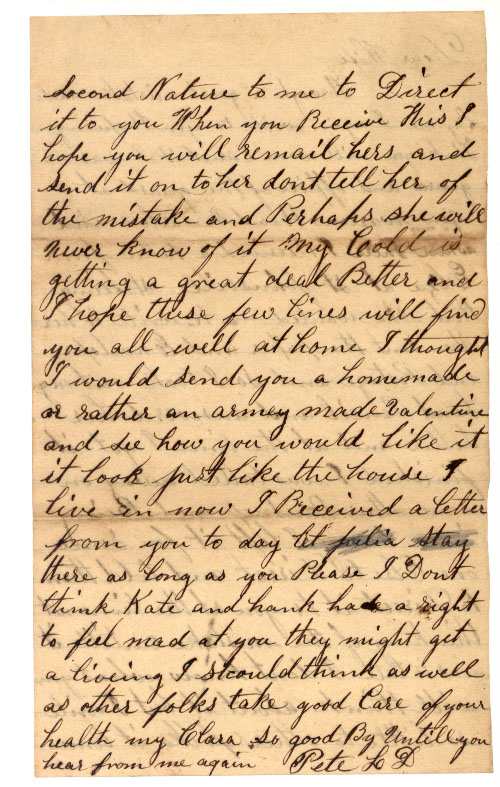 second Nature to me to Direct
it to you When you Receive This I
hope you will remail hers and
send it on to her dont tell her of
the mistake and Perhaps she will
never know of it My Cold is
getting a great deal Better and
I hope these few lines will find
you all well at home I thought
I would send you a homemade
or rather an armey made Valentine
and see how you would like it
it look just like the house I
live in now I Received a letter
from you to day let julia stay
there as long as you Please I Dont
think Kate and hank had a right
to feel mad at you they might get
a liveing I should think as well
as other folks take good Care of your
health my Clara so good By Untill you
hear from me again Pete L D